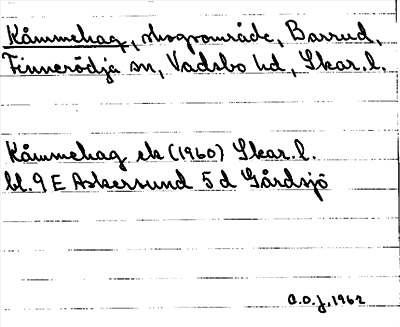 Kåmmehag, skogsområde, Barrud,
Finnerödja sn, Vadsbo hd, Skar.l.
Kåmmehag ek (1960) Skar.l.
bl. 9 E Askersund 5 d Gårdsjö
a.o.j. 1962